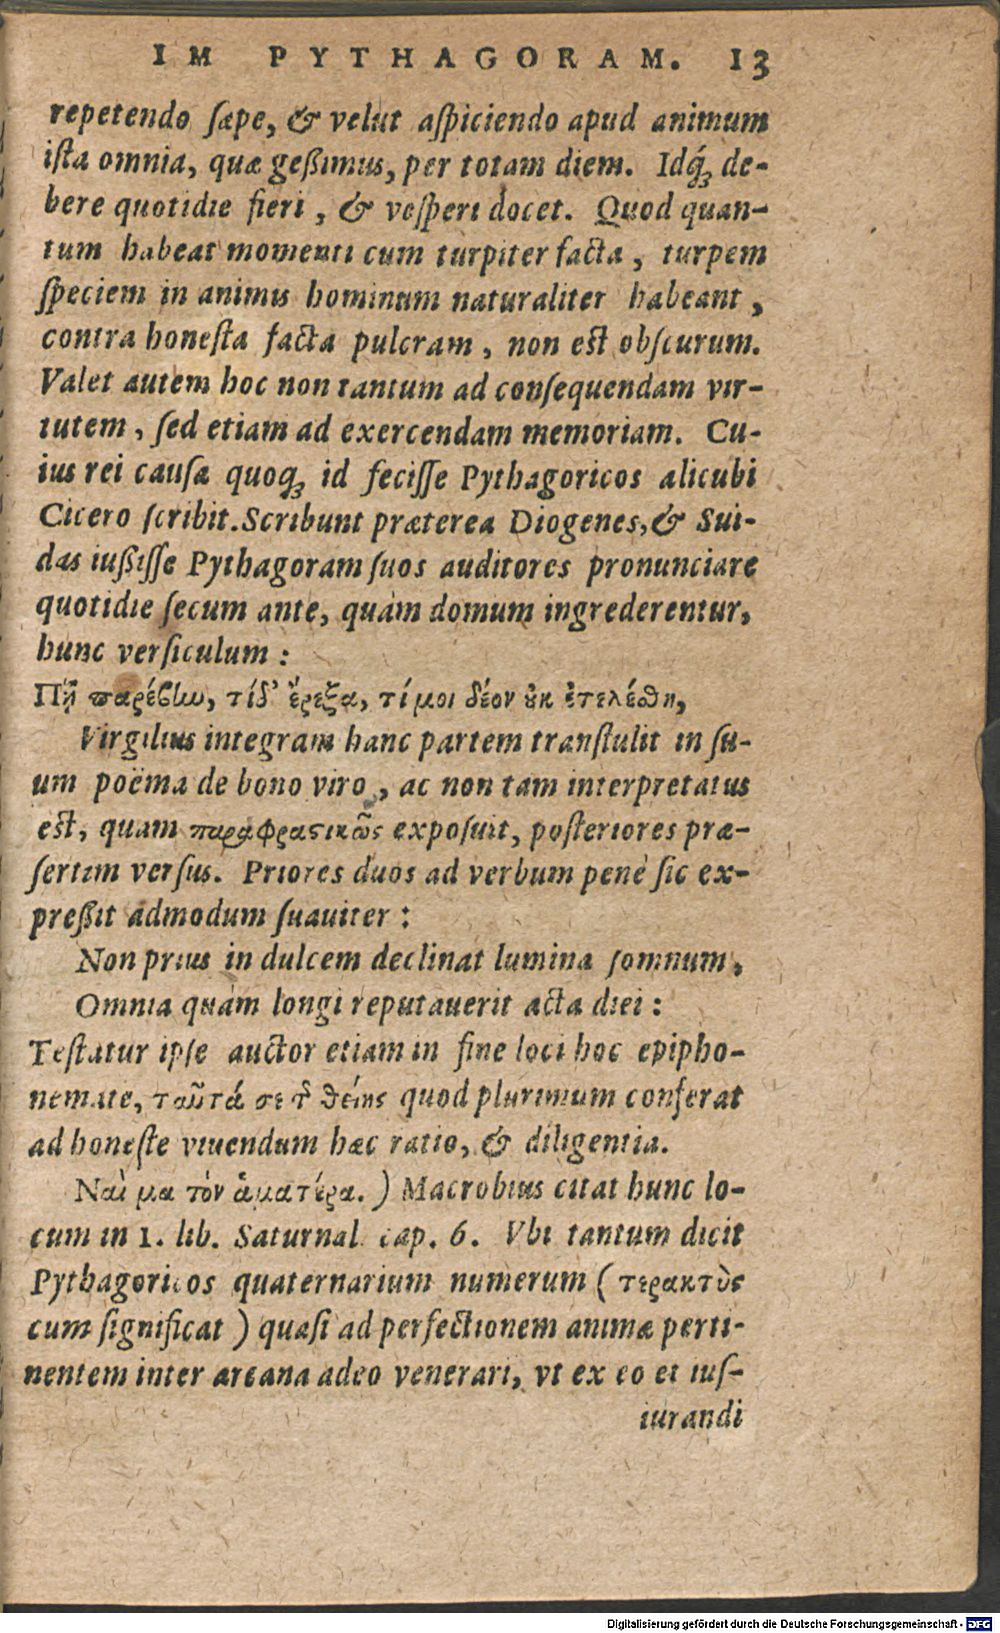 IM PYTHAGORAM. 13
repetendo sæpe, & velut aſpiciendo apud animum
iſta omnia, quæ geßimus, per totam diem. Idq́; de-
bere quotidie fieri, & veſperi docet. Quod quan-
tum habeat momenti cum turpiter facta, turpem
ſpeciem in animis hominum naturaliter habeant,
contra honeſta facta pulcram, non est obſcurum.
Valet autem hoc non tantum ad conſequendam vir-
tutem, ſed etiam ad exercendam memoriam. Cu-
ius rei cauſa quoq; id feciſſe Pythagoricos alicubi
Cicero ſcribit. Scribunt præterea Diogenes, & Sui-
das iußiſſe Pythagoram ſuos auditores pronunciare
quotidie ſecum ante, quàm domum ingrederentur,
hunc verſiculum:
Πῆ παρέβην, τίδ' ἔρεξα, τί μοι δέον ȣκ ἐτελέσθη,
Virgilius integram hanc partem tranſtulit in ſu-
um poëma de bono viro, ac non tam interpretatus
est, quam παραφραστικῶς expoſuit, poſteriores præ-
ſertim verſus. Priores duos ad verbum penè ſic ex-
preßit admodum ſuauiter:
Non prius in dulcem declinat lumina ſomnum,
Omnia quàm longi reputauerit acta diei:
Teſtatur ipſe auctor etiam in fine loci hoc epipho-
nemate, ταῦτά σε τ θείης quod plurimum conferat
ad honeſte viuendum hæc ratio, & diligentia.
Ναὶ μα τὸν ἁματέρα.) Macrobius citat hunc lo-
cum in 1. lib. Saturnal. cap. 6. Vbi tantum dicit
Pythagoricos quaternarium numerum (τερακτὺς
cum ſignificat) quaſi ad perfectionem animæ perti-
nentem inter arcana adeo venerari, vt ex eo et iuſ-
iurandi
Digitalisierung gefördert durch die Deutsche Forschungsgemeinschaft - DFG